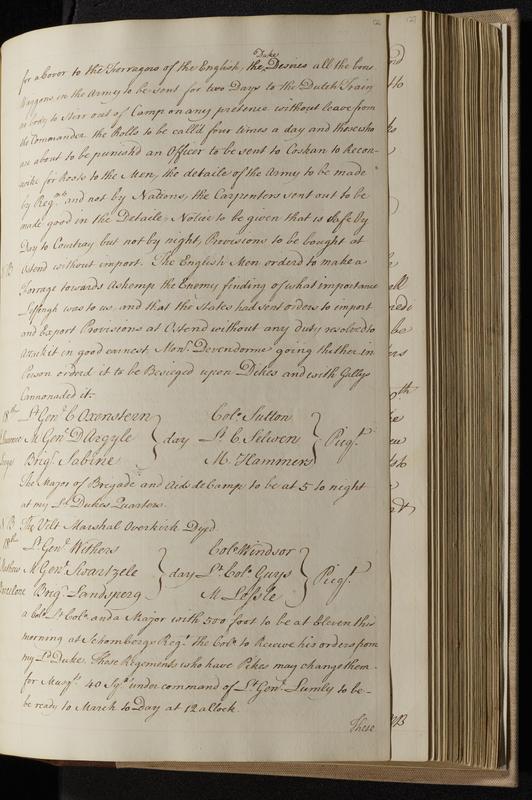 for a Cover to the Forragers of the English, the Duke Desires all the bone
Waggons in the Army to be sent for two Days to the Dutch Train
no body to Ster out of Camp on any pretence without leave from
the Commander the Rolls to be call'd four times a day and those who
are about to be punish'd an Officer to be sent to Coskan to Recon-
for Posts to the Men, the details of the Army to be made
by Regmts and not by Nations, the Carpenters sent out to be
made good in the Details, Notice to be given that is Safe by
Day to Courtray but not by night, Provisions to be bought at
NB Ostend without import. The English Men orderd to make a
Forrage towards Ashemp the Enemy finding of what importance
Leffingh was to us, and that the States had sent orders to import
and Export Provisions at Ostend without any Duty resolved to
Attackit in good earnest, Monsr. Devendorme going thither in
Person orderd it to be Besieged upon Dikes and with Gallys
Cannonaded it:
18th Lt. Genl. C Oxenstern Colo. Sutton
M. Genl. D Argyle day Lt. C. Selwen Piqt.
Brigr. Sabine M. Hammers
The Major of Brigade and Aids de Camp to be at 5 to night
at my Ld. Dukes Quarters.
NB The Velt Marshal Overkirk Dyd.
19th Lt. Genl. Withers Colo. Windsor
M Genl. Swartzele day Lt. Colo. Guys Piqt.
Brigr. Landsperg M Lessle
a Colo. Lt. Colo. and a Major with 500 foot to be at Eleven this
morning at Schombergs Regt. the Colo. to Receive his orders from
my Ld. Duke. Those Regiments who have Pikes may change them
for Musqts. 40 Sqs. under command of Lt. Genl. Lumly to be-
be ready to March to Day at 12 a Clock.
These